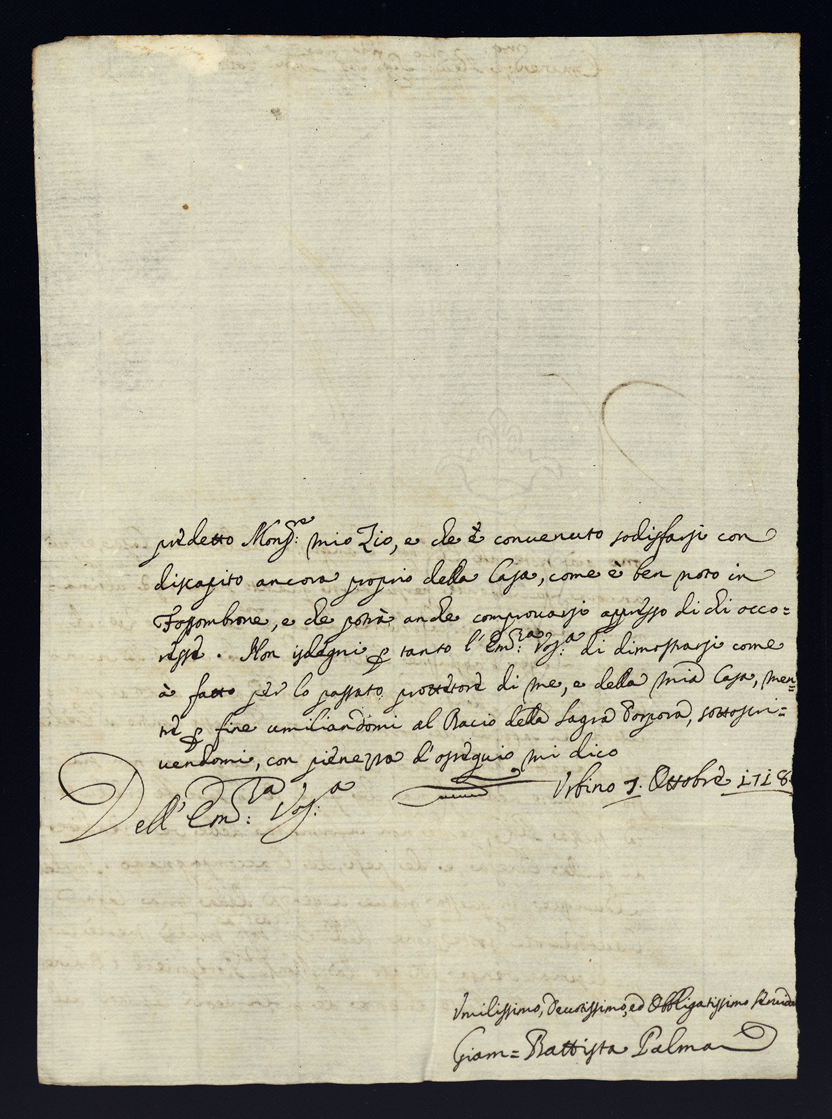 predetto Mons.re mio Zio, e che è convenuto sodisfarsi con
discapito ancora proprio della Casa, come è ben noto in
Fossombrone, e che potrà anche comprovarsi appresso di chi occo=
resse. Non isdegni per tanto l'Em.za Vos.a di dimostrarsi come
à fatto per lo passato protettore di me, e della mia Casa, men=
tre per fine umiliandomi al Bacio della Sagra Porpora, sottoscri=
vendomi, con pienezza d'ossequio mi dico
Urbino 7. Ottobre 1718
Dell' Em.za Vos.a
Umilissimo, Devotissimo, ed Obbligatissimo
Giam= Battista Palma